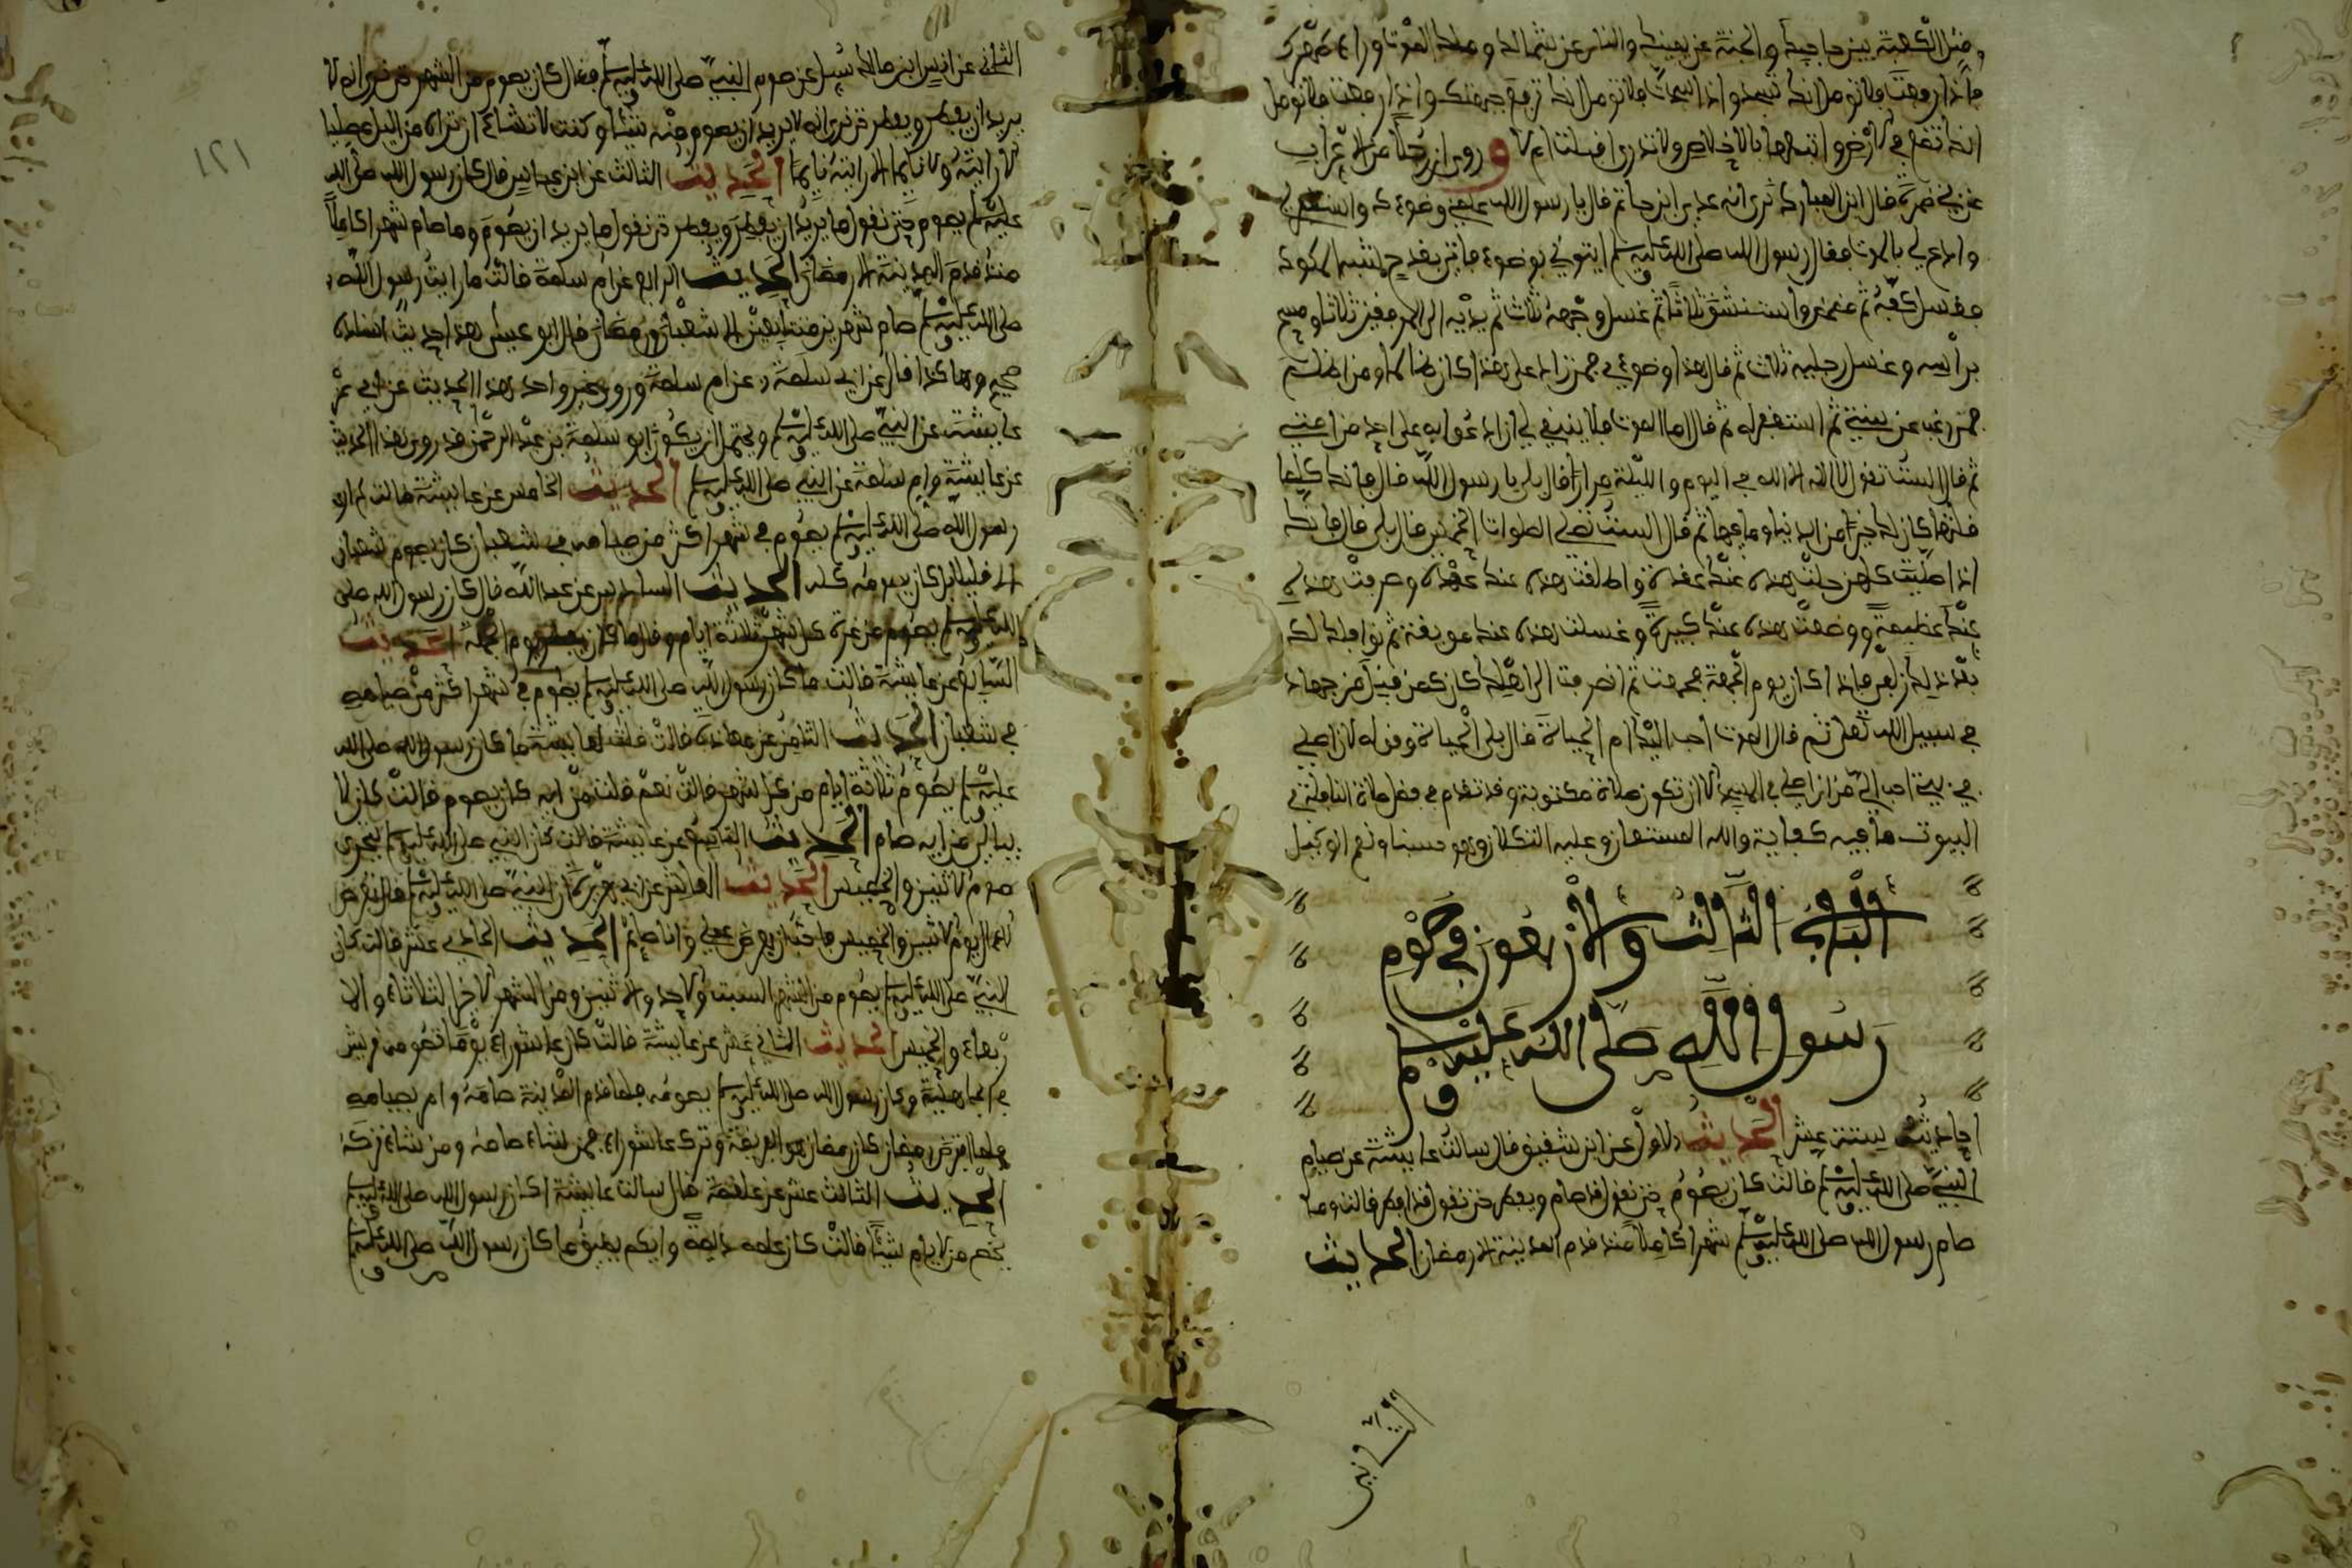 مثل الكعبة بين حاجبيك والجنة عن يمينك والنار عن شمالك وملك الموت وراء ظهرك
فاذا ركعت فلا تومل انك تسجد واذا سجدت فلا تومل انك ترفع جبهتك واذا رفعت فلا تومل
انك تضع في الارض وا بالاخلاص ولا تدري اقبلت ام لا وروي ان رجلا من الاعراب
عن بني ضمرة قال ابن المبارك نرى انه عدي ابن حاتم قال يا رسول الله علمني وضوءك واستغفر لي
وادع لي بالموت فقال رسول الله صلى الله عليه وسلم ايتوني بوضوء فاتي بقدح
فغسل كفيه ثم مضمض واستنشق ثلاثا ثم غسل وجهه ثلاث ثم يديه الى المرفقين ثلاثا ومسح
براسه وغسل رجليه ثلاث ثم قال هذا وضوءي فمن زاد على هذا كان ظالما ومن
فمن رغب عن سنتي ثم استغفر له ثم قال اما الموت فلا ينبغي لي ان ادعوا به على احد من امتي
ثم قال الست تقول لا اله الا الله في اليوم والليلة مرارا قال بلى يا رسول الله قال فانك كلما
قلتها كان لك خيرا من الدنيا وما فيها ثم قال الست تصلي الصلوات الخمس قال بلى قال فانك
اذا صليت كلهن حلت هذه عنك عقدة واطلقت هذه عنك عقدة وصرفت هذه
عنك عظيمة ووضعت هذه عنك كبيرة وغسلت هذه عنك موبقة ثم نوافلك لك
بعد ذلك فاذا كان يوم الجمعة فجمعت ثم انصرفت الى اهلك كان كمن قبل من جهاد
في سبيل الله تعلى ثم قال الموت احب اليك ام الحياة قال بلى الحياة وقوله لان اصلي
في بيتي احب الي من ان اصلي في المسجد الا ان تكون صلاة مكتوبة وقد تقدم في فضل صلاة النافلة في
البيوت ما فيه كفاية والله المستعان وعليه التكلان وهو حسبنا ونعم الوكيل
الباب الثالث والاربعون في صوم
رسول الله صلى الله عليه وسلم
احاديثه ستة عشر الحديث الاول عن ابن شفيق قال سالت عايشة عن صيام
النبي صلى الله عليه وسلم قالت كان يصوم حتى نقول قد صام ويفطر حتى نقول قد افطر قالت وما
صام رسول الله صلى الله عليه وسلم شهرا كاملا منذ قدم المدينة الا رمضان الحديث
الثاني
١٢١
الثاني عن انس ابن مالك سيل عن صوم النبي صلى الله عليه وسلم فقال كان يصوم من الشهر حتى نرى انه لا
يريد ان يفطر ويفطر حتى نرى انه لا يريد ان يصوم منه شيئا وكنت لا تشاء ان تراه من اليل مصليا
الا رايته ولا نايما الا رايته نايما الحديث الثالث عن ابن عباس قال كان رسول الله صلى الله
عليه وسلم يصوم حتى نقول ما يريد ان يفطر ويفطر حتى نقول ما يريد ان يصوم وما صام شهرا كاملا
منذ قدم المدينة الا رمضان الحديث الرابع عن ام سلمة قالت ما رايت رسول الله
صلى الله عليه وسلم صام شهرين متتابعين الا شعبان ورمضان قال ابو عيسى هذا حديث اسناده
صحيح وهاكذا قال عن ابي سلمة عن ام سلمة وروى غير واحد هذا الحديث عن ابي
عايشة عن النبي صلى الله عليه وسلم ويحتمل ان يكون ابو سلمة بن عبد الرحمن قد روى هذا الحديث
عن عايشة وام سلمة عن النبي صلى الله عليه وسلم الحديث الخامس عن عايشة قالت لم ار
رسول الله صلى الله عليه وسلم يصوم في شهر اكثر من صيامه في شعبان كان يصوم شعبان
الا قليلا بل كان يصومه كله الحديث السادس عن عبد الله قال كان رسول الله صلى
الله عليه وسلم يصوم من غرة كل شهر ثلاثة ايام وقل ما كان يفطر يوم الجمعة الحديث
السابع عن عايشة قالت ما كان رسول الله صلى الله عليه وسلم يصوم في شهر اكثر من صيامه
في شعبان الحديث الثامن عن معاذة قالت قلت لعايشة ما كان رسول الله صلى الله
عليه وسلم يصوم ثلاثة ايام من كل شهر قالت نعم قلت من ايه كان يصوم قالت كان لا
يبالي من ايه صام الحديث التاسع عن عايشة قالت كان النبي صلى الله عليه وسلم يتحرى
صوم الاثنين والخميس الحديث العاشر عن ابي هريرة ان النبي صلى الله عليه وسلم قال تعرض
الاعمال يوم الاثنين والخميس فاحب ان يعرض عملي وانا صايم الحديث الحادي عشر قالت كان
النبي صلى الله عليه وسلم يصوم من الشهر السبت والاحد والاثنين ومن الشهر الاخر الثلاثاء والا
ربعاء والخميس الحديث الثاني عشر عن عايشة قالت كان عاشوراء يوما تصومه قريش
في الجاهلية وكان رسول الله صلى الله عليه وسلم يصومه فلما قدم المدينة صامه وامر بصيامه
فلما افترض رمضان كان رمضان هو الفريضة وترك عاشوراء فمن شاء صامه ومن شاء تركه
الحديث الثالث عشر عن علقمة قال سالت عايشة اكان رسول الله صلى الله عليه وسلم
يخص من الايام شيئا قالت كان عمله ديمة وايكم يطيق ما كان رسول الله صلى الله عليه وسلم